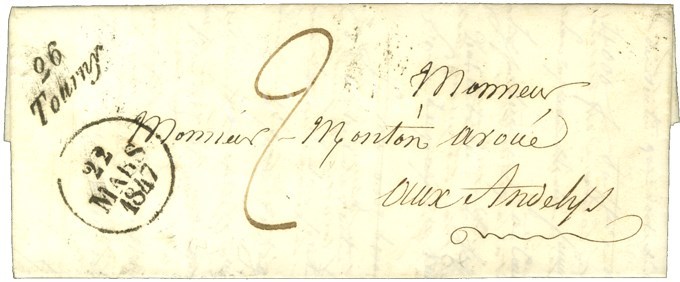 26
Tourny
22
MARS
1847
2
Monsieur
Monsieur - Monton avoué
aux Andelys